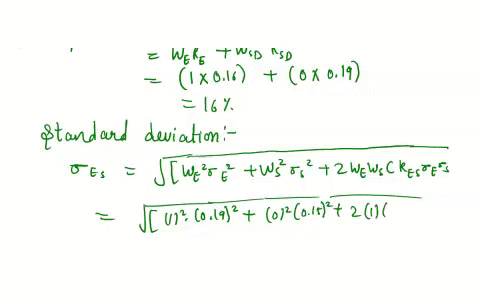 = W_E R_E + W_SD R_SD
= (1 x 0.16) + (0 x 0.19)
= 16%
Standard deviation:-
σ_Es = √[W_E²σ_E² + W_S²σ_S² + 2 W_E W_S C R_ES σ_E σ_S
= √[(1)²·(0.19)² + (0)²(0.15)² + 2(1)(